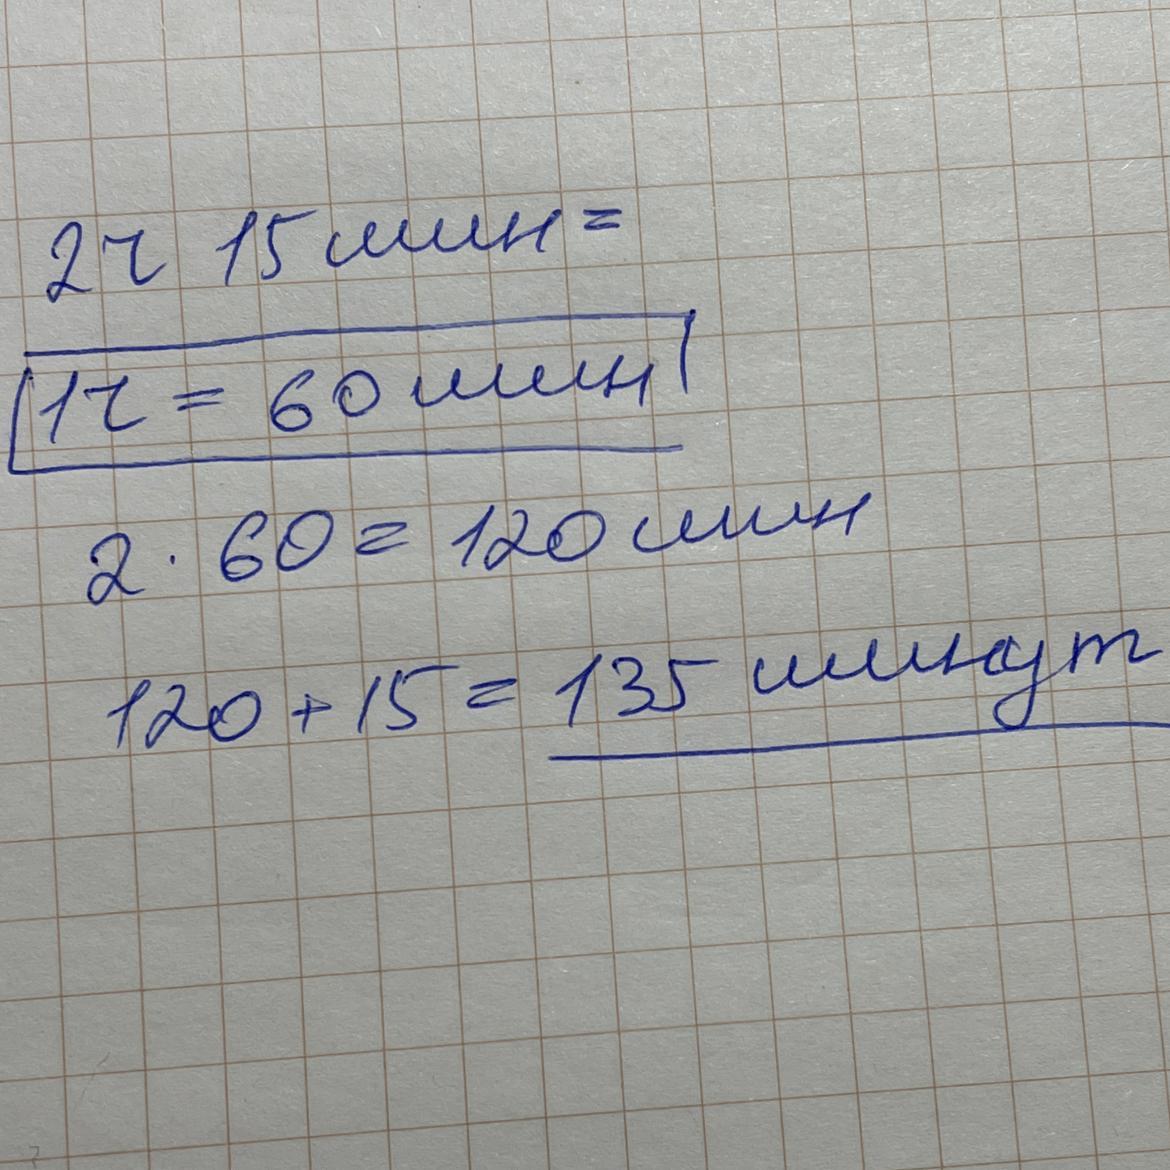 2ч 15 мин =
1ч = 60 мин
2 · 60 = 120 мин
120 + 15 = 135 минут